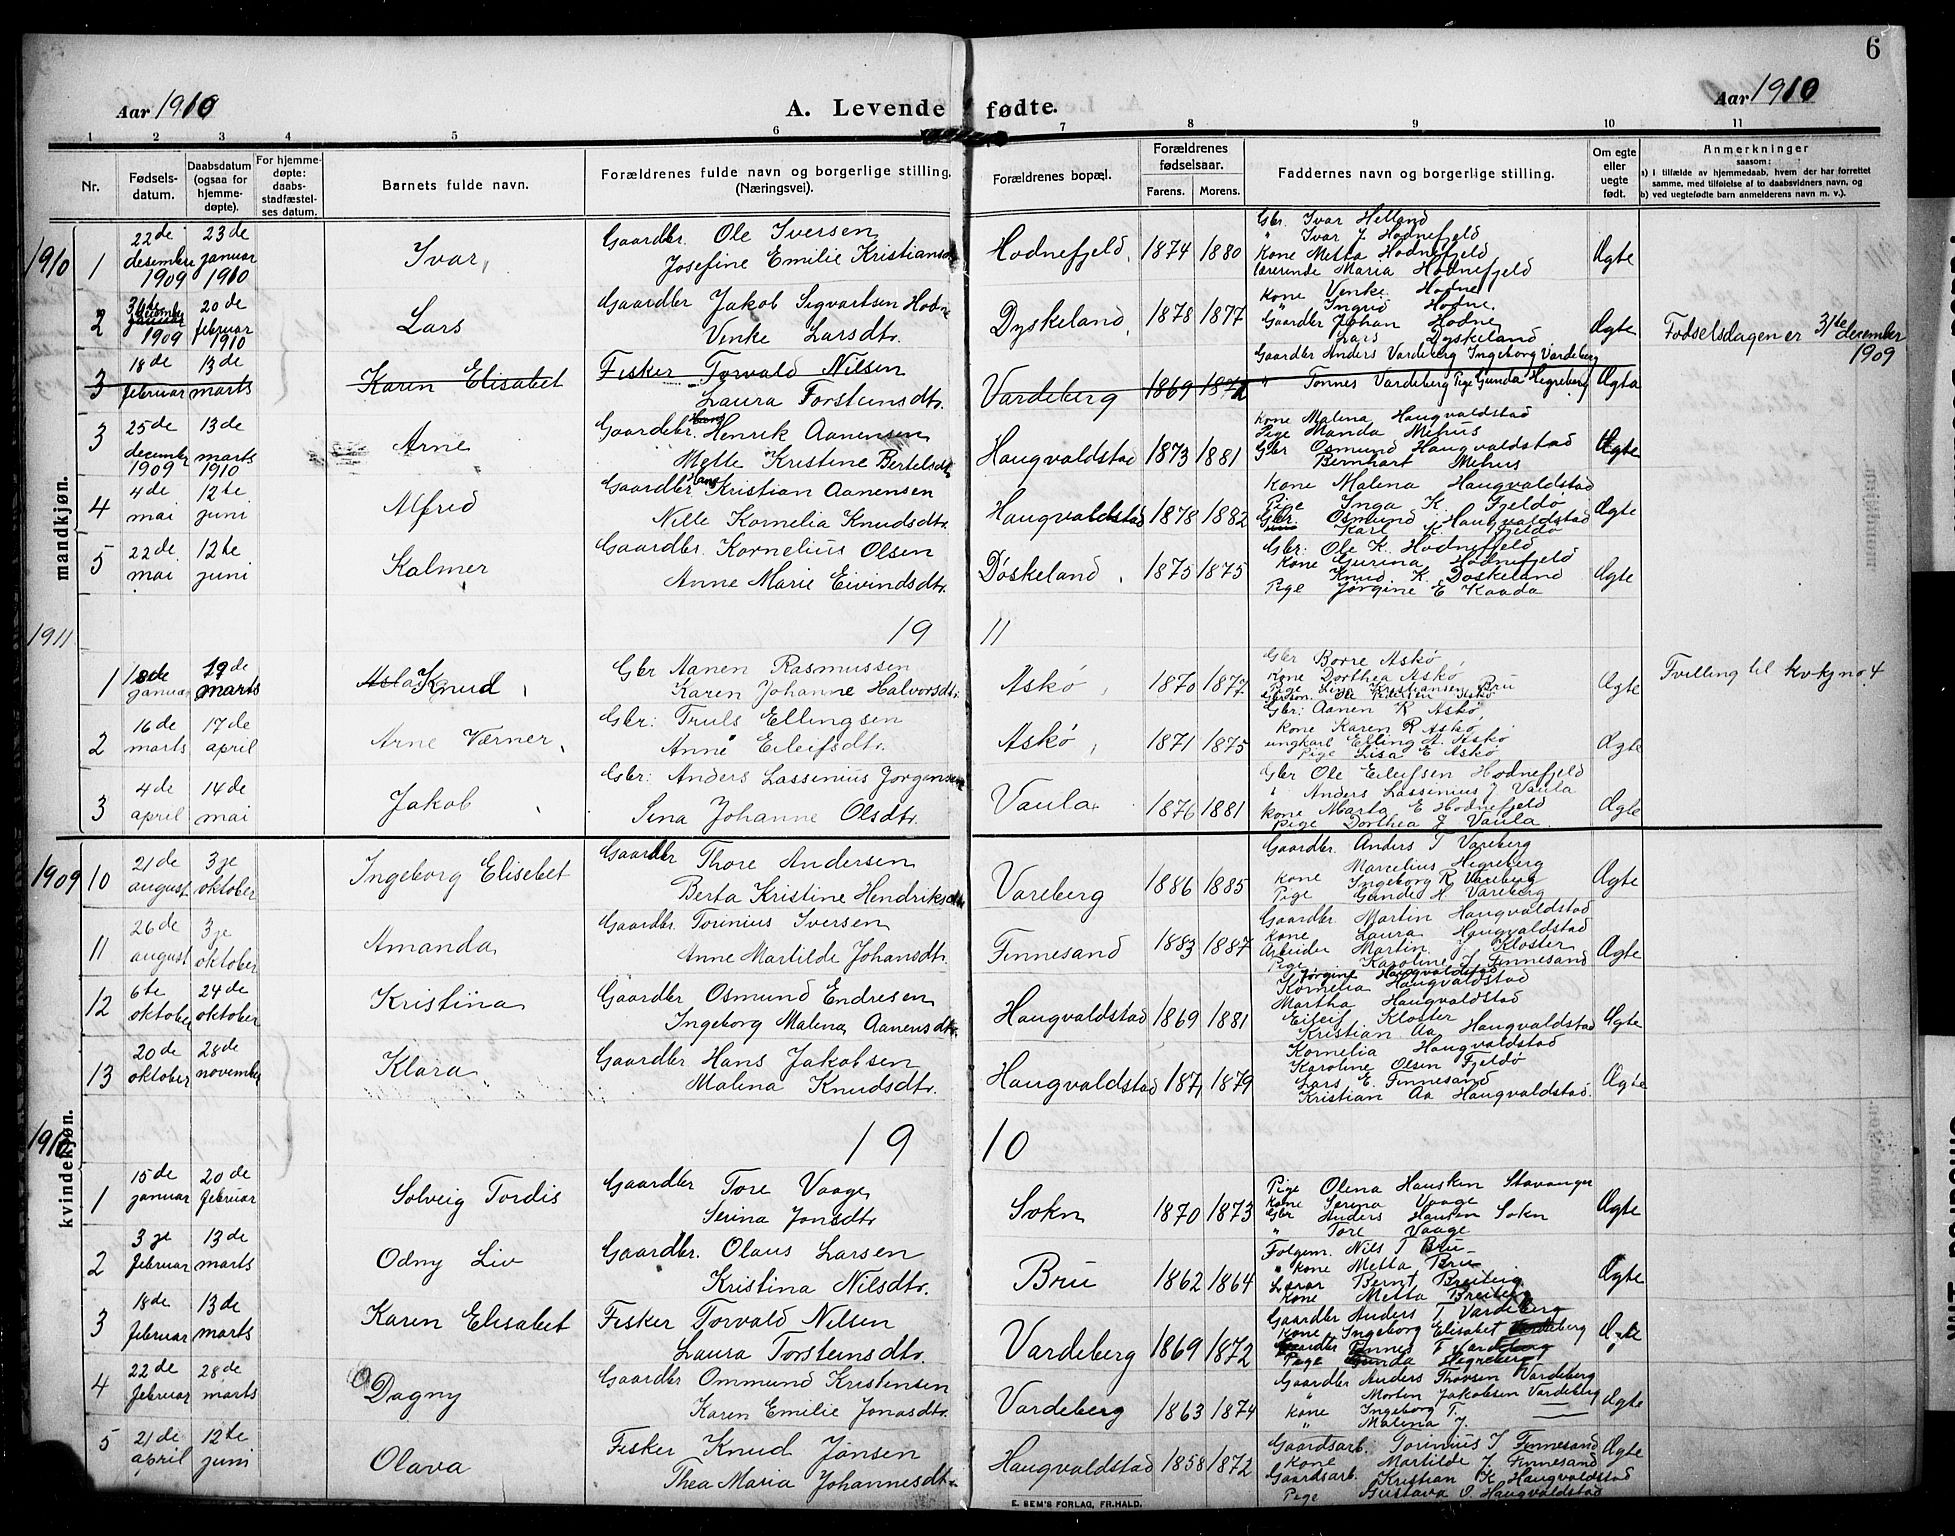 6
Aar 1910 A. Levende fødte. Aar 1910
1 2 3 4 5 6 7 8 9 10 11
Nr. Fødsels-datum. Daabsdatum (ogsaa for hjemme-døpte). For hjemme-døpte: daabs-stadfæstel-ses datum. Barnets fulde navn. Forældrenes fulde navn og borgerlige stilling. (Næringsvei). Forældrenes bopæl. Forældrenes fødselsaar. Farens. Morens. Faddernes navn og borgerlige stilling. Om egte eller uegte født. Anmerkninger saasom: a) I tilfælde av hjemmedaab, hvem der har forrettet samme, med tilføielse af to daabsvidners navn, og b) ved uegtefødte barn anmelderens navn m. v.).
mandkjøn.
1910 1 22de desembre 1909 23de januar 1910 Ivar Gaardbr. Ole Iversen Josefine Emilie Kristiansdtr Hodnefjeld 1874 1880 Gbr. Ivar Helland " Ivar J. Hodnefjeld Kone Metha Hodnefjeld lærerinde Maria Hodnefjeld Ægte
2 31te december 1909 20de februar 1910 Lars Gaardbr Jakob Segvartsen Hodne Venke Larsdtr. Dyskeland 1878 1877 Kone Venke Hodne " Ingrid Hodne Gaardbr Johan Hodne Lars Dyskeland Ægte Fødselsdagen er 31te december 1909
3 18de februar 13de marts Karen Elisabet Fisker Torvald Nilsen Laura Torsteinsdtr. Vardeberg 1869 1872 Gaardbr Anders Vardeberg Ingeborg Vardeberg " Tønnes Vardeberg Pige Gunda Hegreberg Ægte
3 25de december 1909 13de marts 1910 Arne Gaardbr. Hans Henrik Aanensen Mette Kristine Bertelsdtr Haugvaldstad 1873 1881 Kone Malena Haugvaldstad Pige Manda Mehus Gbr Osmund Haugvaldstad Bernhart Mehus Ægte
4 4de mai 12te juni Alfred Gaardbr Hans Kristian Aanensen Nille Kornelia Knudsdtr. Haugvaldstad 1878 1882 Kone Malena Haugvaldstad Pige Inga K. Fjeldø Gbr. Osmund Haugvaldstad Karl K Fjeldø Ægte
5 22de mai 12te juni Kalmer Gaardbr. Kornelius Olsen Anne Marie Eivindsdtr. Døskeland 1875 1875 Gbr: Ole K. Hodnefjeld Kone Gurina Hodnefjeld Knud K. Døskeland Pige Jørgine E Kaada Ægte
1911 19 11
1 18de januar 19de marts Knud Gbr Aanen Rasmussen Karen Johanne Halvorsdtr. Askø 1870 1877 Gbr Børre Askø Kone Dorthea Askø Pige Lina Kristiansen Bru Ole Askø Ægte Tvilling til kvkj no 4
2 16de marts 17de april Arne Værner Gbr: Truls Ellingsen Anne Eileifsdtr. Askø 1871 1875 Gbr: Aanen R Askø Kone Karen R Askø ungkarl Elling A. Askø Pige Lisa E Askø Ægte
3 4de april 14de mai Jakob Gbr: Anders Lassenius Jørgensen Sena Johanne Olsdtr. Vaula 1876 1881 Gbr Ole Eileifsen Hodnefjeld " Anders Lassenius J Vaula Kone Marta E Hodnefjeld Pige Dorthea J Vaula Ægte
kvindekjøn.
1909 10 21de august 3je oktober Ingeborg Elisebet Gaardbr Thore Andersen Berta Kristine Hendriksdtr Vareberg 1886 1885 Gaardbr. Anders T Vareberg Marselius Hegreberg Kone Ingeborg R Vareberg Pige Gunde A Vareberg Ægte
11 26de august 3je oktober Amanda Gaardbr. Torinius Iversen Anne Martilde Johansdtr. Finnesand 1883 1887 Gaardbr Martin Haugvaldstad Kone Laura Haugvaldstad Arbeider Martin J. Kloster Pige Karoline I. Finnesand Ægte
12 6te oktober 24de oktober Kristina Gaardbr Osmund Endresen Ingeborg Malena Aanensdtr. Haugvaldstad 1869 1881 Jørgine Haugvaldstad Kornelia Haugvaldstad Martha Haugvaldstad Eileif Kloster Kristian Aa Haugvaldstad Ægte
13 20de oktober 28de november Klara Gaardbr Hans Jakobsen Malina Knudsdtr. Haugvaldstad 1871 1879 Kornelia Haugvaldstad Karoline Olsen Fjeldø Lars E. Finnesand Kristian Aa Haugvaldstad Ægte
1910 19 10
1 15de januar 20de februar Solveig Tordis Gaardbr Tore Vaage Serina Jonsdtr Sokn 1870 1873 Pige Olena Hausken Stavanger Kone Serina Vaage Gbr Anders Hansen Sokn " Tore Vaage Ægte
2 3je februar 13de marts Odny Liv Gaardbr. Olaus Larsen Kristina Nilsdtr. Bru 1862 1864 Folgem. Nils T Bru " Kone Metta Bru Lærar Bernt Breiberg Kone Metta Breiberg Ægte
3 18de februar 13de marts Karen Elisabet Fisker Torvald Nilsen Laura Torsteinsdtr. Vardeberg 1869 1872 Gaardbr Anders T Vardeberg Kone Ingeborg Elisabet Vardeberg Gaardbr Tønnes T Vardeberg Pige Gunda Hegreberg Ægte
4 22de februar 28de marts Dagny Gaardbr Ommund Kristensen Karen Emilie Jonasdtr. Vardeberg 1863 1874 Gaardbr Anders Thorsen Vardeberg " Morten Jakobsen Vardeberg Kone Ingeborg T. " Malena J. Ægte
5 21de april 12te juni Olava Fisker Knud Jonsen Thea Maria Johannesdtr. Haugvaldstad 1858 1872 Gaardsarb. Torinius I Finnesand Kone Martilde J. Finnesand Gaardsarb. Kristian K Haugvaldstad Pige Gustava O. Haugvaldstad Ægte
E. SEM'S FORLAG, FR.HALD.